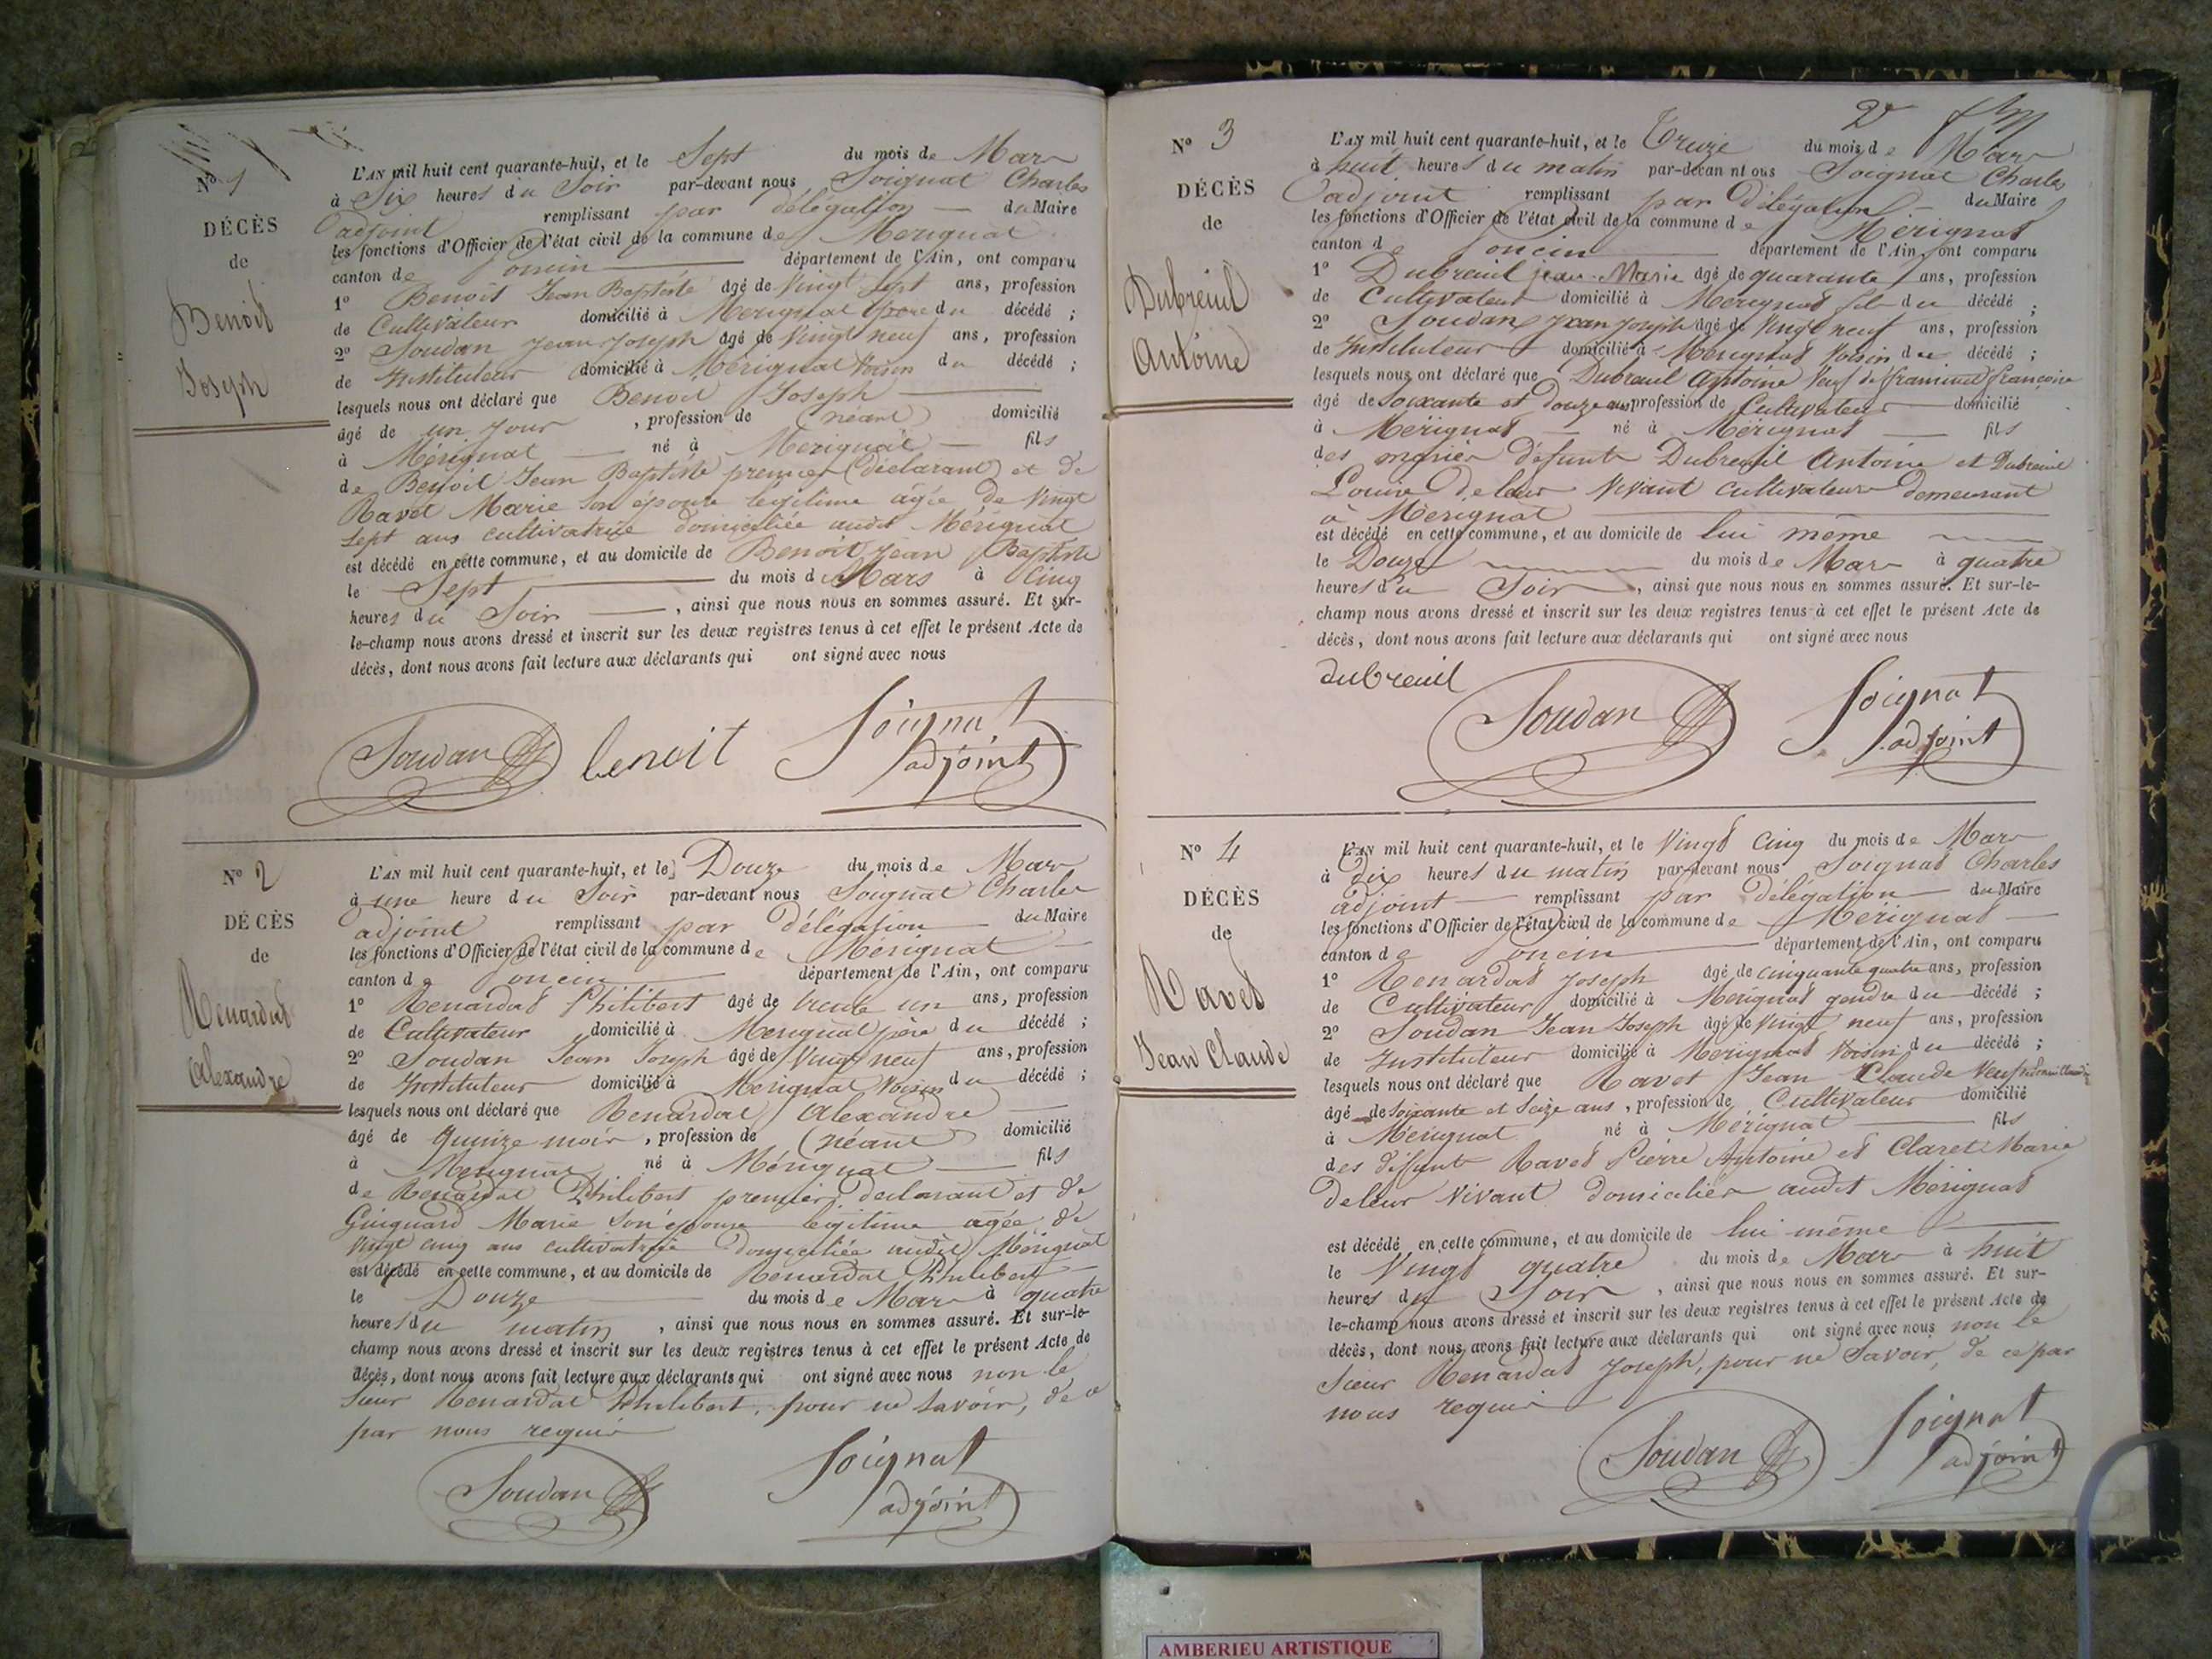 Nº 1
DÉCÈS
de
Benoit
Joseph
L'AN mil huit cent quarante-huit, et le Sept du mois de Mars
à Six heures du Soir par-devant nous Soignat Charles
adjoint remplissant par délégation du Maire
les fonctions d'Officier de l'état civil de la commune de Mérignat
canton de Poncin département de l'Ain, ont comparu
1º Benoit Jean Baptiste âgé de Vingt sept ans, profession
de Cultivateur domicilié à Merignat père du décédé ;
2º Soudan Jean Joseph âgé de Vingt neuf ans, profession
de Instituteur domicilié à Mérignat Voisin du décédé ;
lesquels nous ont déclaré que Benoit Joseph
âgé de un jour , profession de (néant) domicilié
à Mérignat né à Merignat fils
de Benoit Jean Baptiste premier (déclarant) et de
Ravet Marie son épouse legitime agée de Vingt
sept ans cultivatrice domiciliée audit Mérignat
est décédé en cette commune, et au domicile de Benoit Jean Baptiste
le Sept du mois de Mars à Cinq
heures du Soir , ainsi que nous nous en sommes assuré. Et sur-
le-champ nous avons dressé et inscrit sur les deux registres tenus à cet effet le présent Acte de
décès, dont nous avons fait lecture aux déclarants qui ont signé avec nous
Soudan benoit Soignat
adjoint
Nº 2
DÉCÈS
de
Renardat
Alexandre
L'AN mil huit cent quarante-huit, et le Douze du mois de Mars
à une heure du Soir par-devant nous Soignat Charles
adjoint remplissant par délégation du Maire
les fonctions d'Officier de l'état civil de la commune de Mérignat
canton de Poncin département de l'Ain, ont comparu
1º Renardat Philibert âgé de trente un ans, profession
de Cultivateur domicilié à Merignat père du décédé ;
2º Soudan Jean Joseph âgé de Vingt neuf ans, profession
de Instituteur domicilié à Merignat Voisin du décédé ;
lesquels nous ont déclaré que Renardat Alexandre
âgé de quinze mois , profession de (néant) domicilié
à Merignat né à Mérignat fils
de Renardat Philibert premier declarant et de
Guignard Marie son épouse legitime agée de
Vingt cinq ans cultivatrice domiciliée audit Mérignat
est décédé en cette commune, et au domicile de Renardat Philibert
le Douze du mois de Mars à quatre
heures du matin , ainsi que nous nous en sommes assuré. Et sur-le-
champ nous avons dressé et inscrit sur les deux registres tenus à cet effet le présent Acte de
décès, dont nous avons fait lecture aux déclarants qui ont signé avec nous non le
Sieur Renardat Philibert, pour ne savoir, de ce
par nous requis
Soudan Soignat
adjoint
2
Nº 3
DÉCÈS
de
Dubreuil
Antoine
L'AN mil huit cent quarante-huit, et le Treize du mois de Mars
à huit heures du matin par-devan nt ous Soignat Charles
adjoint remplissant par Délégation du Maire
les fonctions d'Officier de l'état civil de la commune de Mérignat
canton de Poncin département de l'Ain, ont comparu
1º Dubreuil jean-Marie âgé de quarante ans, profession
de Cultivateur domicilié à Merignat fils du décédé ;
2º Soudan Jean Joseph âgé de Vingt neuf ans, profession
de Instituteur domicilié à Merignat Voisin du décédé ;
lesquels nous ont déclaré que Dubreuil Antoine Veuf de françoise
âgé de soixante et douze ans profession de Cultivateur domicilié
à Mérignat né à Mérignat fils
des mariés défunts Dubreuil Antoine et Dubreuil
Louise De leur Vivant cultivateurs demeurant
à Merignat
est décédé en cette commune, et au domicile de lui même
le Douze du mois de Mars à quatre
heures du Soir , ainsi que nous nous en sommes assuré. Et sur-le-
champ nous avons dressé et inscrit sur les deux registres tenus à cet effet le présent Acte de
décès, dont nous avons fait lecture aux déclarants qui ont signé avec nous
dubreuil
Soudan Soignat
adjoint
Nº 4
DÉCÈS
de
Ravet
Jean Claude
L'AN mil huit cent quarante-huit, et le Vingt Cinq du mois de Mars
à Dix heures du matin par-devant nous Soignat Charles
adjoint remplissant par délégation du Maire
les fonctions d'Officier de l'état civil de la commune de Mérignat
canton de Poncin département de l'Ain, ont comparu
1º Renardat Joseph âgé de cinquante quatre ans, profession
de Cultivateur domicilié à Merignat gendre du décédé ;
2º Soudan Jean Joseph âgé de Vingt neuf ans, profession
de Instituteur domicilié à Merignat Voisin du décédé ;
lesquels nous ont déclaré que Ravet Jean Claude Veuf
âgé de soixante et seize ans , profession de Cultivateur domicilié
à Mérignat né à Mérignat fils
des défunts Ravet Pierre Antoine et Claret Marie
De leur Vivant domiciliés audit Mérignat
est décédé en cette commune, et au domicile de lui même
le Vingt quatre du mois de Mars à huit
heures du Soir , ainsi que nous nous en sommes assuré. Et sur-
le-champ nous avons dressé et inscrit sur les deux registres tenus à cet effet le présent Acte de
décès, dont nous avons fait lecture aux déclarants qui ont signé avec nous non le
Sieur Renardat Joseph, pour ne savoir, de ce par
nous requis
Soudan Soignat
adjoint
AMBERIEU ARTISTIQUE